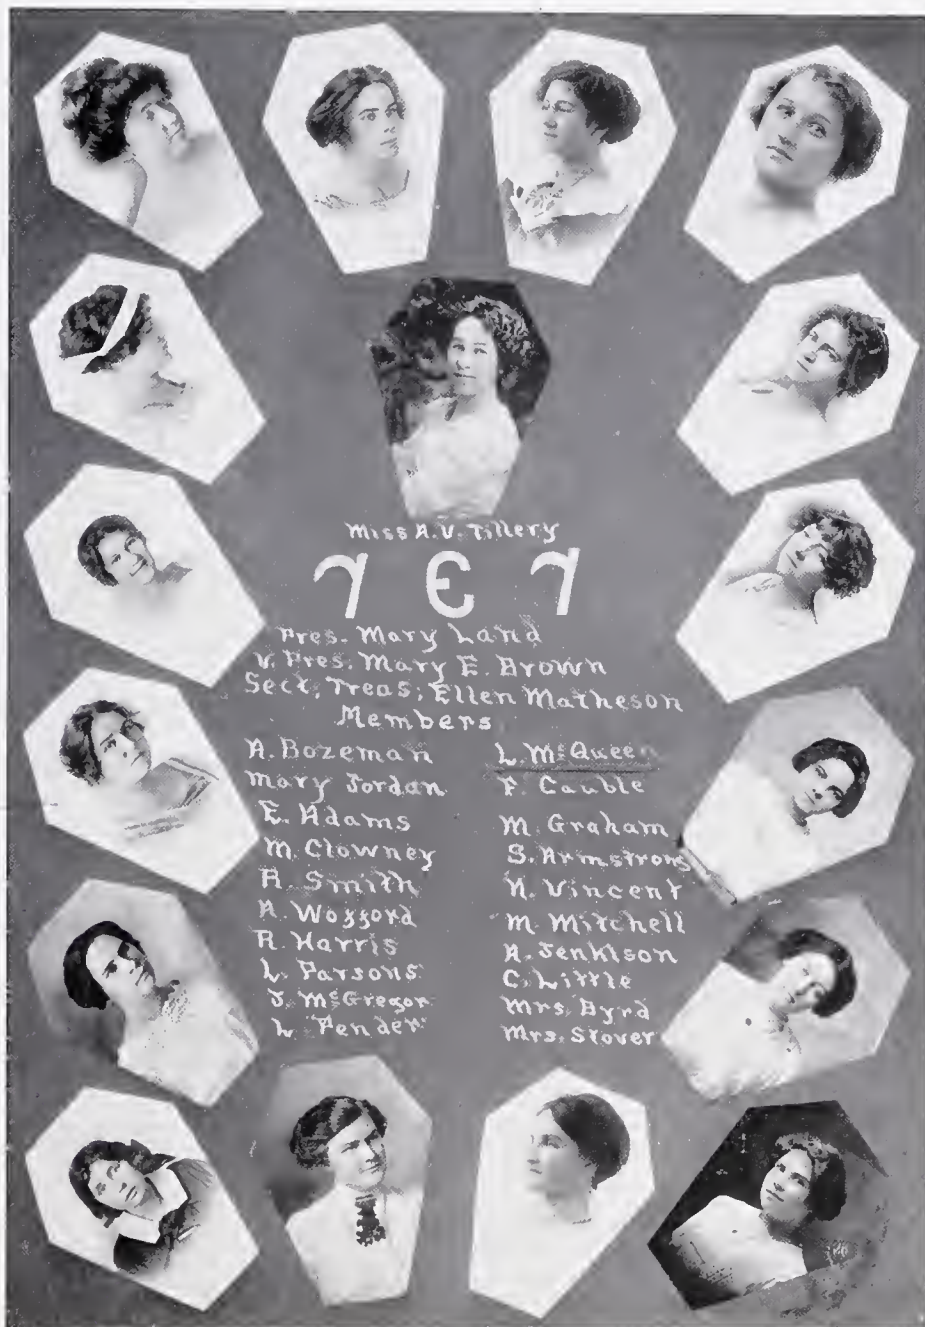 Miss A.V. Tillery
γ Є γ
Pres. Mary Land
V. Pres. Mary E. Brown
Sect. Treas. Ellen Matheson
Members
A. Bozeman
Mary Jordan
E. Adams
M. Clowney
R. Smith
A. Wofford
R. Harris
L. Parsons
J. McGregor
L. Pender
L. McQueen
F. Cauble
M. Graham
S. Armstrong
N. Vincent
M. Mitchell
A. Jenkison
C. Little
Mrs. Byrd
Mrs. Stover